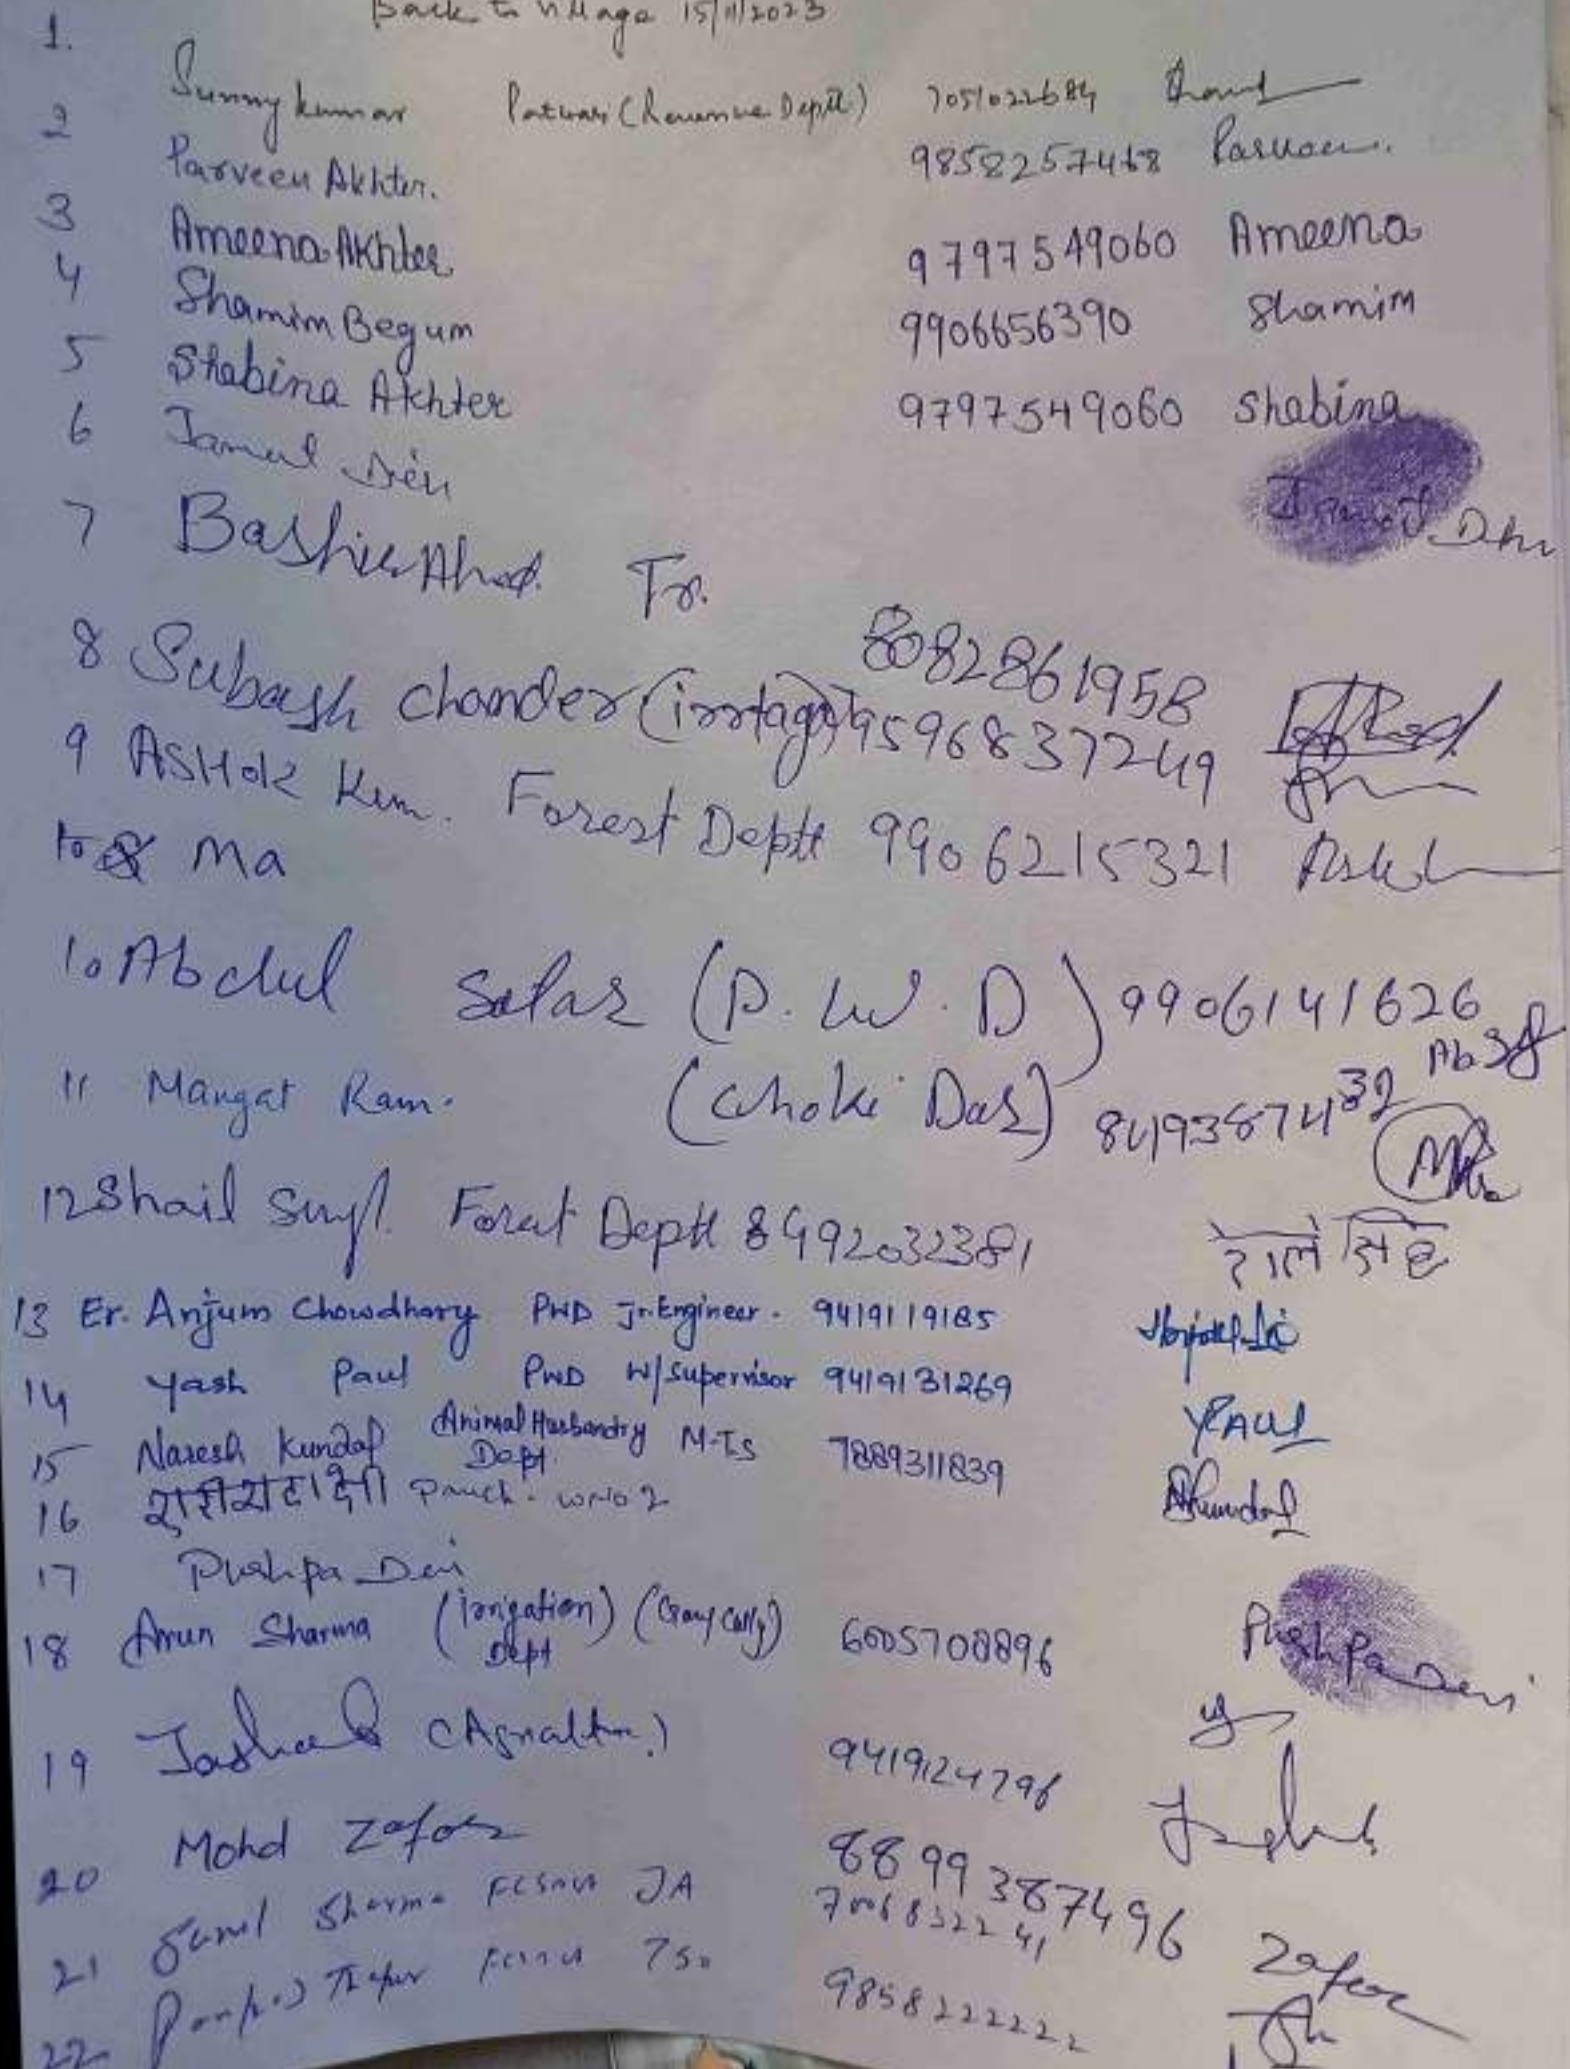 Back to Village 15/11/2023
1.
Sunny kumar Patwari (Revenue Deptt) 7051022684
2 Parveen Akhter. 9858257468 Parveen.
3 Ameena Akhter 9797549060 Ameena
4 Shamim Begum 9906656390 Shamim
5 Shabina Akhter 9797549060 Shabina
6 Jamal Din
7 Bashir Ahd. Tr. 8082861958
8 Subash chander 9596837249
9 AShok Kum. Forest Deptt 9906215321
10 Ma
10 Abdul (P.W.D) 9906141626
11 Mangat Ram. (Choki Dar) 8493874432
12 Shail Forest Deptt 8492032381
13 Er. Anjum Chowdhary PWD Jr. Engineer. 9419119185
14 Yash Paul PWD W/Supervisor 9419131269 YPAUL
15 Naresh Kundal Animal Husbandry Dept M.T.S 7889311839
16 Panch. WNo 2
17 Pushpa Devi Pushpa Devi
18 Arun Sharma (Irrigation) Dept 6005708896
19 9419124796
20 Mohd Zafar 8899387496 Zafar
21 Sunil Sharma JA 7006832241
22. TSO 985822222